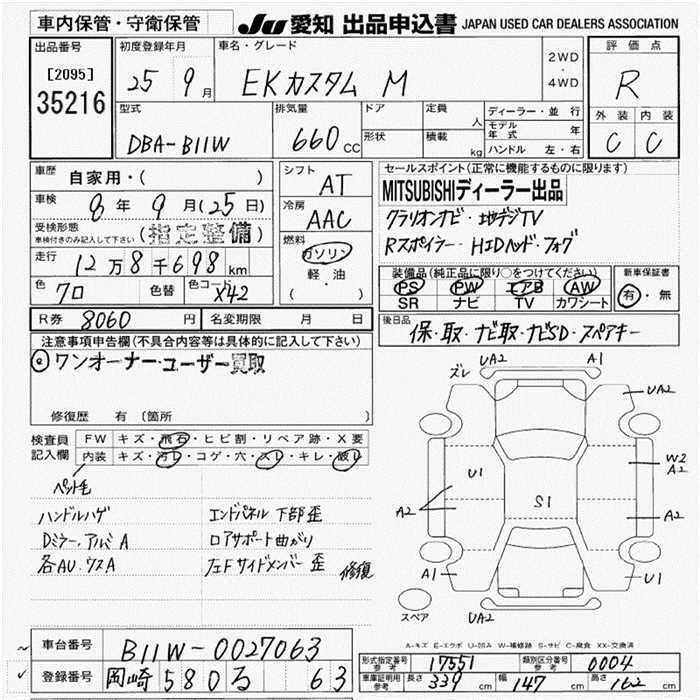 車内保管・守衛保管
JU 愛知 出品申込書 JAPAN USED CAR DEALERS ASSOCIATION
出品番号 [2095] 35216
初度登録年月 25 9月
車名・グレード EKカスタム M
2WD・4WD
評価点 R
外装 C 内装 C
型式 DBA-B11W
排気量 660cc
ドア 形状
定員 人 積載 kg
ディーラー・並行
モデル年式 年
ハンドル 左・右
車歴 自家用・( )
車検 8年9月(25日)
受検形態 車検付きのみ記入して下さい (指定整備)
走行 12万8千698km
色 クロ 色替 色コード X42
シフト AT
冷房 AAC
燃料 ガソリン 軽・油 ( )
セールスポイント(正常に機能するものに限ります)
MITSUBISHIディーラー出品
クラリオンナビ・地デジTV
Rスポイラー・HIDヘッド・フォグ
装備品(純正品に限り○をつけてください)
PS PW エアB AW
SR ナビ TV カワシート
新車保証書 有・無
R券 8060円 名変期限 月 日
後日品 保・取・ナビ取・ナビSD・スペアキー
注意事項申告欄(不具合内容等は具体的に記入して下さい)
ワンオーナー・ユーザー買取
修復歴 有 〔箇所 〕
検査員記入欄
FW キズ・飛石・ヒビ割・リペア跡・X要
内装 キズ・汚レ・コゲ・穴・スレ・キレ・破レ
ペット毛
ハンドルハゲ
Dミラー,アルミA
各AU.ウスA
エンドパネル下部歪
ロアサポート曲がり
左Fサイドメンバー歪 修復
ズレ UA2 A1
UA2
U1
W2
A2
S1
A2
A2
A1
U1
UA2
スペア
A-キズ E-エクボ U-凹み W-補修跡 S-サビ C-腐食 XX-交換済
車台番号 B11W-0027063
登録番号 岡崎 580 る 63
形式指定番号 参考 17551 類別区分番号 参考 0004
車庫証明用 参考 長さ 339cm 幅 147cm 高さ 162cm